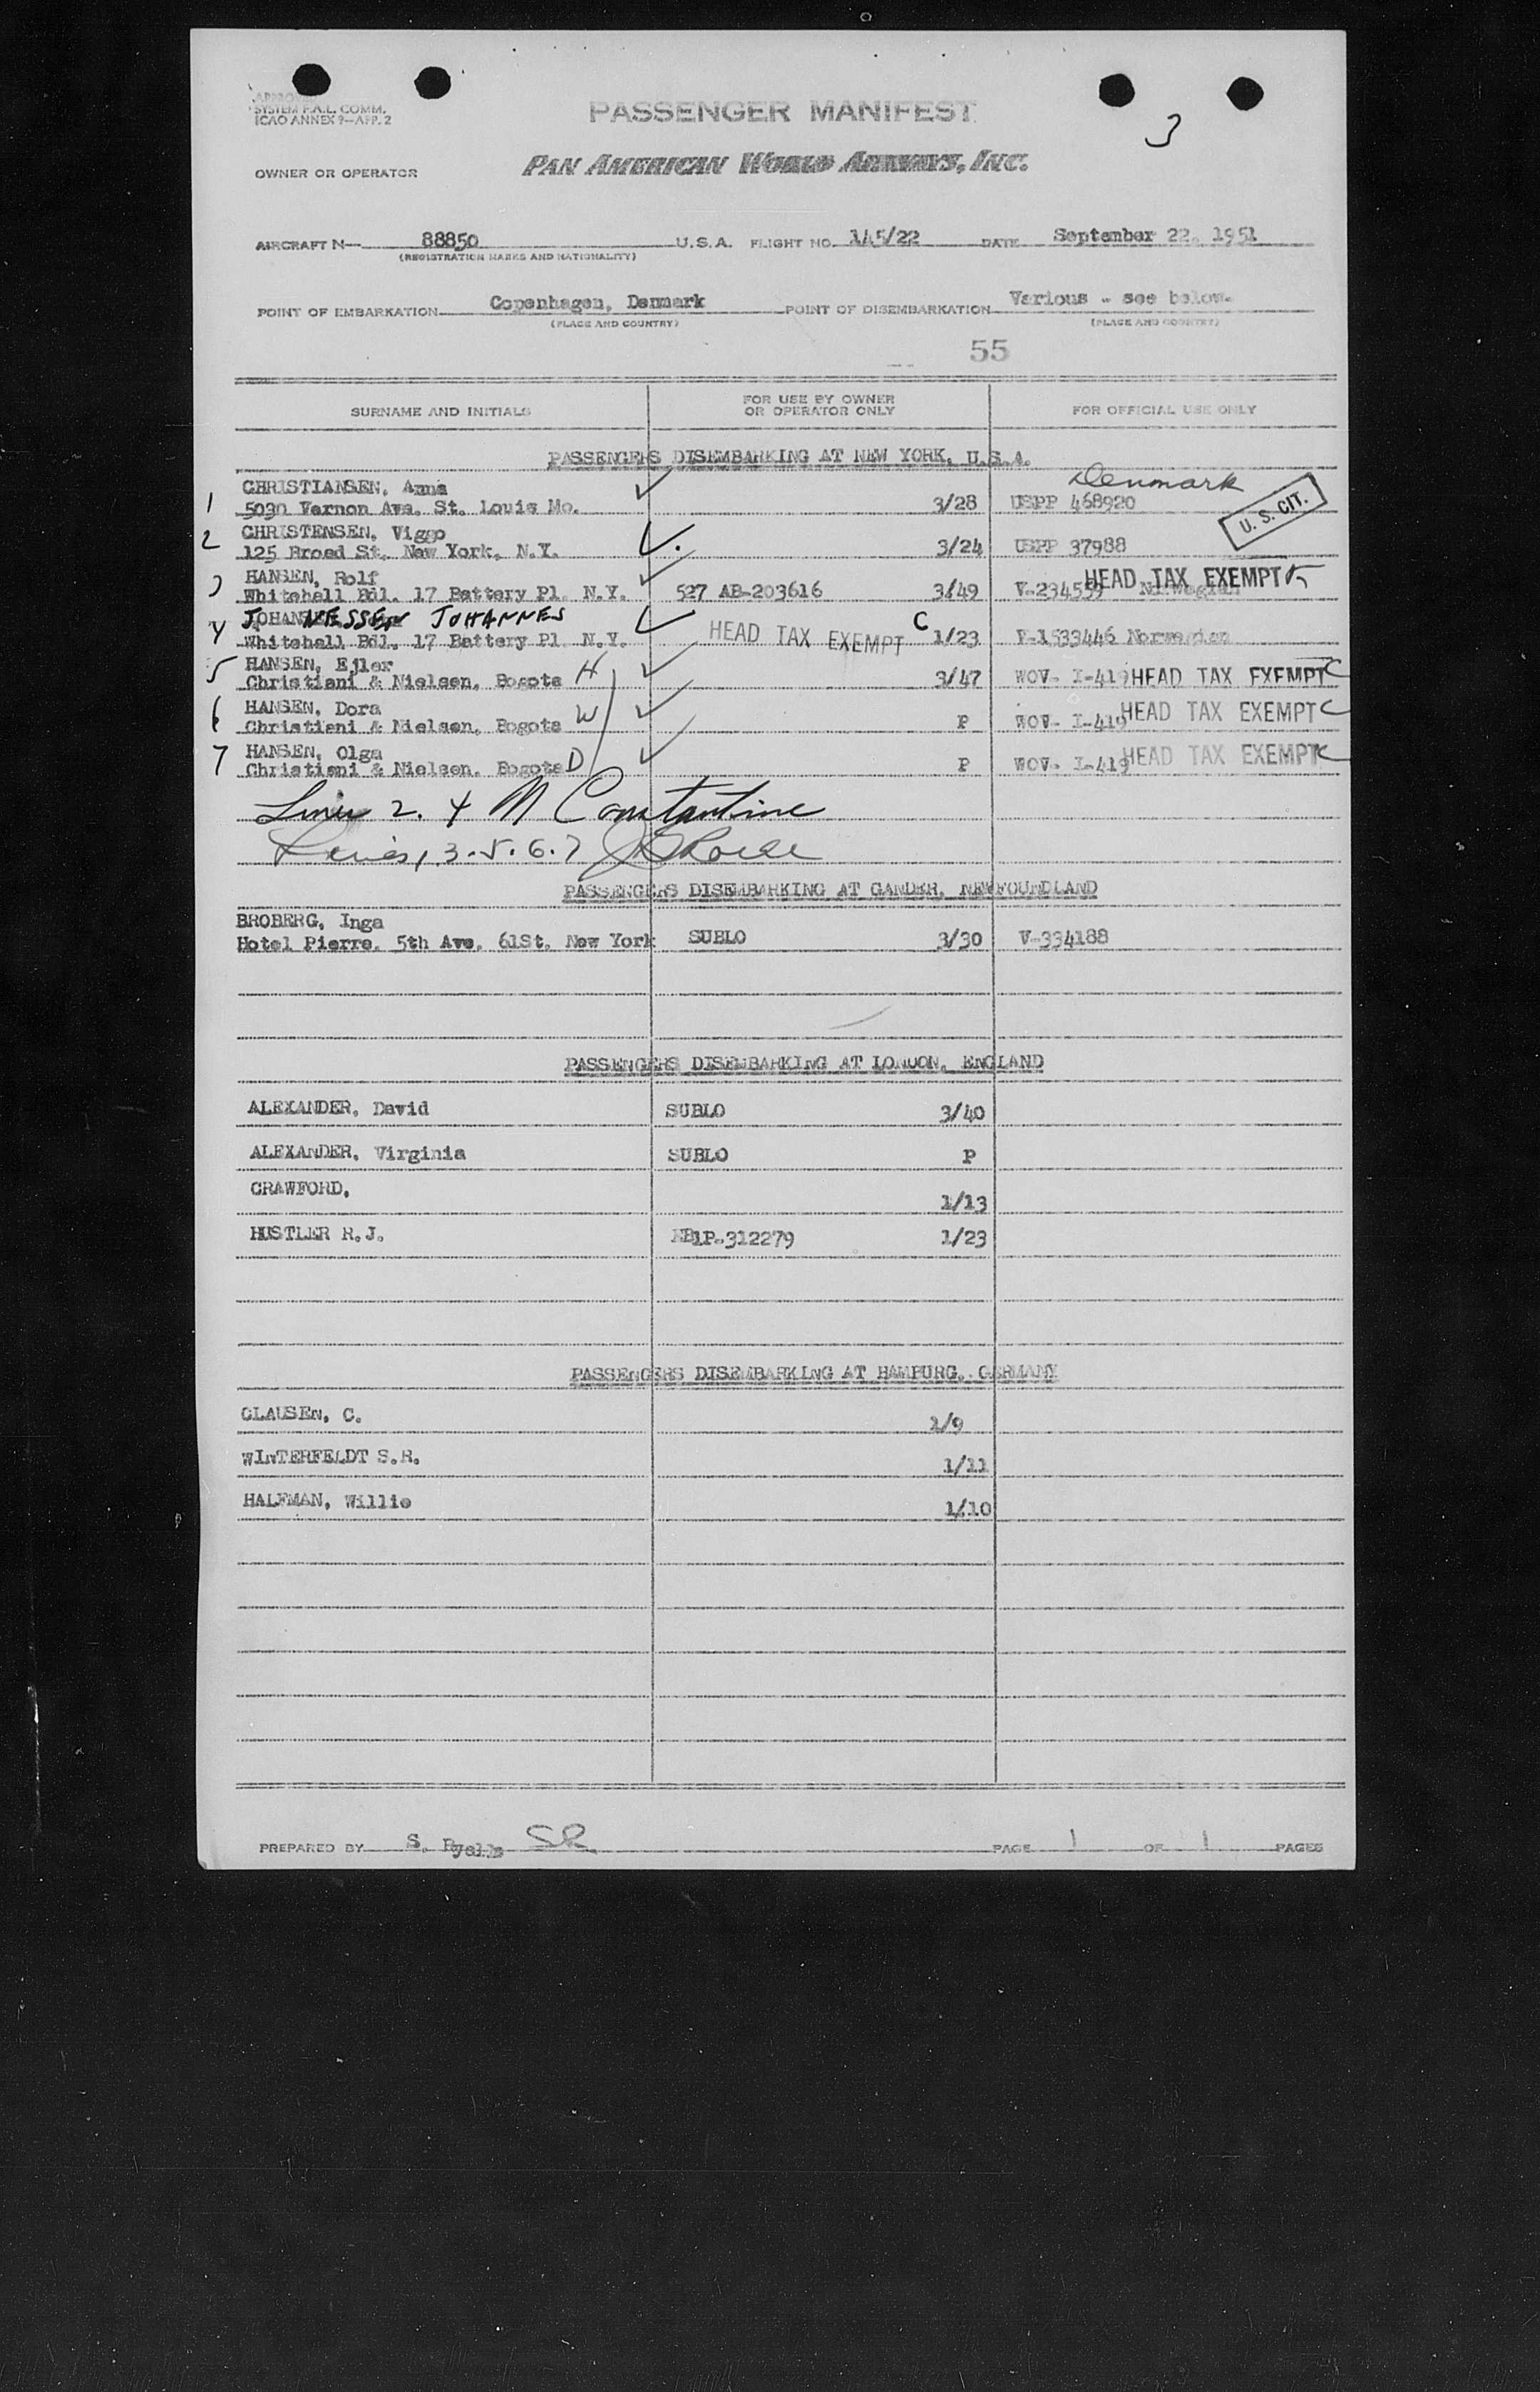 3
APPROVED
SYSTEM F.A.L. COMM.
ICAO ANNEX 9—APP. 2
PASSENGER MANIFEST
OWNER OR OPERATOR
PAN AMERICAN WORLD AIRWAYS, INC.
AIRCRAFT N— 88850 U.S.A. FLIGHT NO. 145/22 DATE September 22, 1951
(REGISTRATION MARKS AND NATIONALITY)
POINT OF EMBARKATION Copenhagen, Denmark POINT OF DISEMBARKATION Various - see below.
(PLACE AND COUNTRY) (PLACE AND COUNTRY)
55
SURNAME AND INITIALS FOR USE BY OWNER OR OPERATOR ONLY FOR OFFICIAL USE ONLY
PASSENGERS DISEMBARKING AT NEW YORK, U.S.A.
CHRISTIANSEN, Anna Denmark
1 5030 Vernon Ave. St. Louis Mo. 3/28 USPP 468920 U. S. CIT.
2 CHRISTENSEN, Viggo
125 Broad St. New York, N.Y. 3/24 USPP 37988
3 HANSEN, Rolf HEAD TAX EXEMPT
Whitehall Bdl. 17 Battery Pl. N.Y. 527 AB-203616 3/49 V-234559 Norwegian
JOHANNESSEN JOHANNES
4 Whitehall Bdl. 17 Battery Pl N.Y. HEAD TAX EXEMPT C 1/23 P-1533446 Norwegian
5 HANSEN, Ejler H
Christiani & Nielsen, Bogota 3/47 WOV- I-419 HEAD TAX EXEMPT C
6 HANSEN, Dora W
Christiani & Nielsen, Bogota P WOV- I-419 HEAD TAX EXEMPT C
7 HANSEN, Olga
Christiani & Nielsen, Bogota D P WOV- I-419 HEAD TAX EXEMPT C
Lines 2. 4 M Constantine
Lines 1 3. 5. 6. 7
PASSENGERS DISEMBARKING AT GANDER, NEWFOUNDLAND
BROBERG, Inga
Hotel Pierre, 5th Ave. 61St. New York SUBLO 3/30 V-334188
PASSENGERS DISEMBARKING AT LONDON, ENGLAND
ALEXANDER, David SUBLO 3/40
ALEXANDER, Virginia SUBLO P
CRAWFORD, 1/13
HUSTLER R.J. NB1P-312279 1/23
PASSENGERS DISEMBARKING AT HAMBURG, GERMANY
CLAUSEN, C. 1/9
WINTERFELDT S.R. 1/11
HALFMAN, Willie 1/10
PREPARED BY S. Ryalls SR PAGE 1 OF 1 PAGES